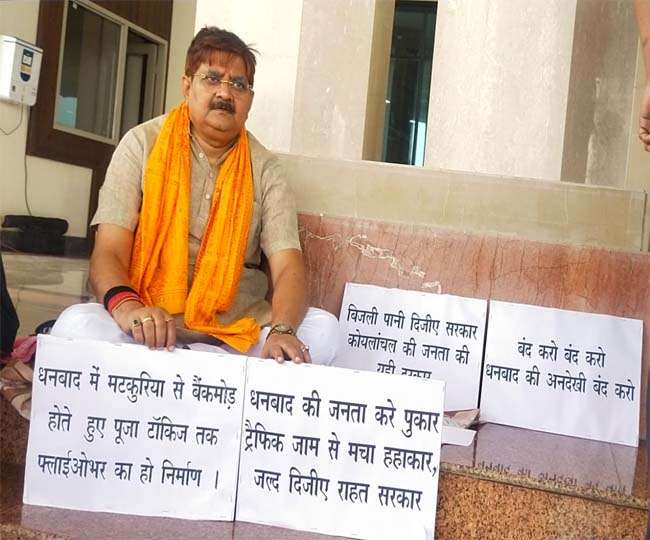 धनबाद में मटकुरिया से बैंकमोड़
होते हुए पूजा टॉकिज तक
फ्लाईओभर का हो निर्माण ।
धनबाद की जनता करे पुकार
ट्रैफिक जाम से मचा हहाकार,
जल्द दिजीए राहत सरकार
बिजली पानी दिजीए सरकार
कोयलांचल की जनता की
यही
बंद करो बंद करो
धनबाद की अनदेखी बंद करो